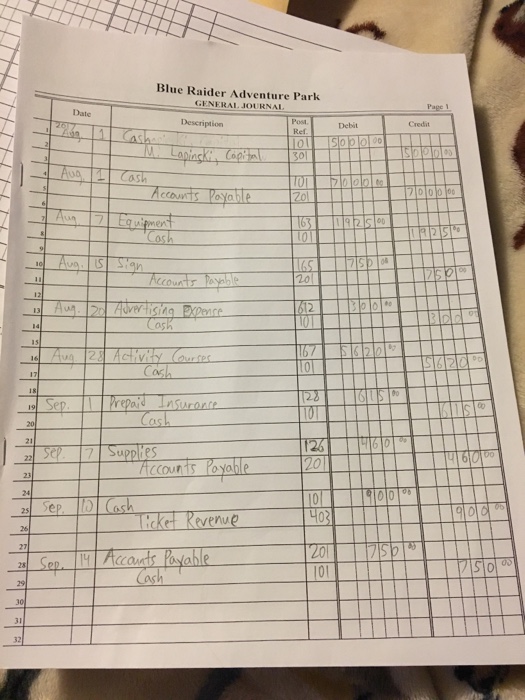 Blue Raider Adventure Park
GENERAL JOURNAL
Page 1
Date Description Post. Ref. Debit Credit
1 2017 Aug. 1 Cash 101 5000 00
2 M. Lapinski, Capital 301 5000 00
3
4 Aug. 1 Cash 101 7000 00
5 Accounts Payable 201 7000 00
6
7 Aug. 7 Equipment 163 1925 00
8 Cash 101 1925 00
9
10 Aug. 15 Sign 165 750 00
11 Accounts Payable 201 750 00
12
13 Aug. 20 Advertising Expense 612 300 00
14 Cash 101 300 00
15
16 Aug 28 Activity Courses 167 5620 00
17 Cash 101 5620 00
18
19 Sep. 1 Prepaid Insurance 128 615 00
20 Cash 101 615 00
21
22 Sep. 7 Supplies 126 460 00
23 Accounts Payable 201 460 00
24
25 Sep. 10 Cash 101 900 00
26 Ticket Revenue 403 900 00
27
28 Sep. 14 Accounts Payable 201 750 00
29 Cash 101 750 00
30
31
32